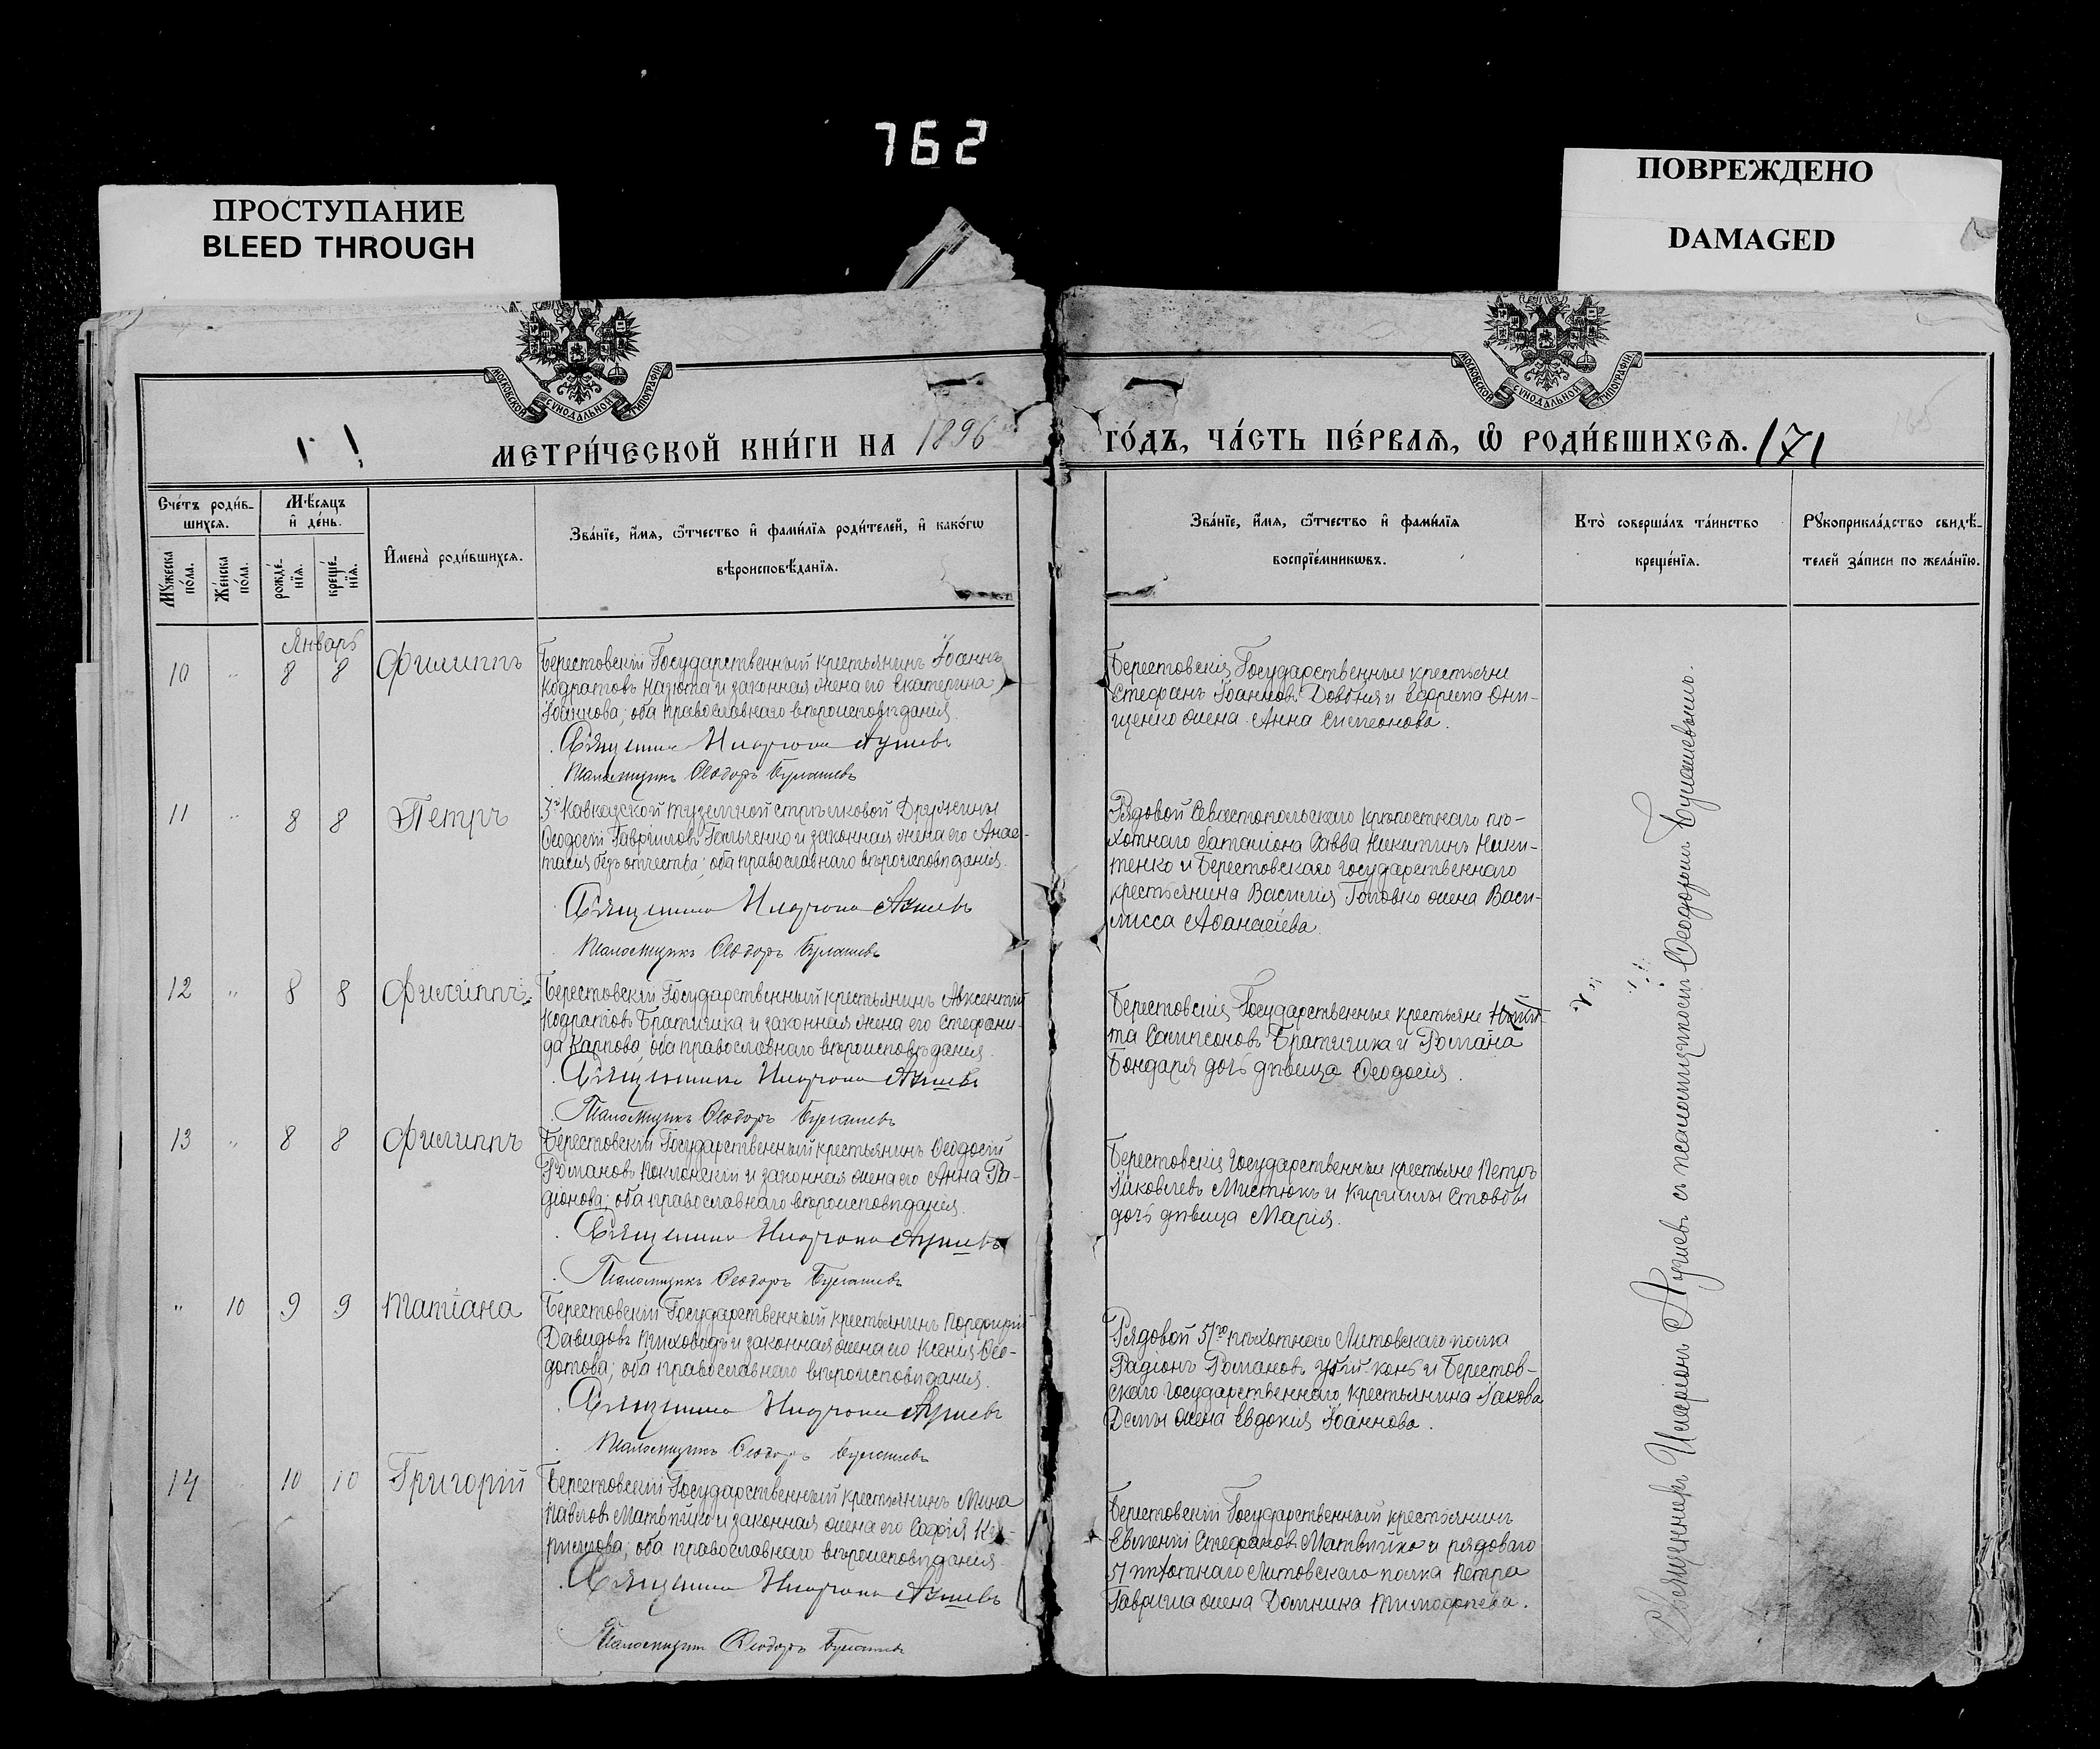 762
ПРОСТУПАНИЕ
BLEED THROUGH
ПОВРЕЖДЕНО
DAMAGED
МОСКОВСКОЙ СѴНОДАЛЬНОЙ ТИПОГРАФІИ
МОСКОВСКОЙ СѴНОДАЛЬНОЙ ТИПОГРАФІИ
МЕТРИ́ЧЕСКОЙ КНИ́ГИ НА 1896
ГО́ДЪ, ЧА́СТЬ ПЕ́РВАѦ, Ѡ҆ РОДИ́ВШИХСѦ. 171
165
Сче́тъ роди́в-
шихсѧ.
Мѣ́сѧцъ
и҆ де́нь.
Мꙋ́жеска
по́ла.
Же́нска
по́ла.
рожде́-
нїѧ.
креще́-
нїѧ.
И҆мена̀ роди́вшихсѧ.
Зва́нїе, и҆́мѧ, ѻ҆́тчество и҆ фами́лїѧ роди́телей, и҆ како́гѡ
вѣроисповѣ́данїѧ.
Зва́нїе, и҆́мѧ, ѻ҆́тчество и҆ фами́лїѧ
воспрїе́мникѡвъ.
Кто̀ соверша́лъ та́инство
креще́нїѧ.
Рꙋкоприкла́дство свидѣ́-
телей за́писи по жела́нїю.
Январь
10 " 8 8 Филиппъ
Берестовскій Государственный крестьянинъ Іоаннъ
Кодратовъ Назюта и законная жена его Екатерина
Іоаннова; оба православнаго вѣроисповѣданія.
Священникъ Иларіонъ Агнiевъ
Псаломщикъ Ѳеодоръ Булашевъ
Берестовскія Государственные крестьяне
Стефанъ Іоанновъ Довбня и Ефрема Они-
щенко жена Анна Симеонова.
11 " 8 8 Петръ
3й Кавказской туземной стрѣлковой Дружины
Ѳеодосій Гавріиловъ Гальченко и законная жена его Анас-
тасія безъ отчества; оба православнаго вѣроисповѣданія.
Священникъ Иларіонъ
Псаломщикъ Ѳеодоръ Булашевъ
Рядовой Севастопольскаго крѣпостнаго пѣ-
хотнаго баталіона Савва Никитинъ Ники-
тенко и Берестовскаго государственнаго
крестьянина Василія Головко жена Васи-
лисса Аѳанасіева.
12 " 8 8 Филиппъ
Берестовскій Государственный крестьянинъ Авксентій
Кодратовъ Братишка и законная жена его Стефани-
да Карпова; оба православнаго вѣроисповѣданія.
Священникъ Иларіонъ
Псаломщикъ Ѳеодоръ Булашевъ
Берестовскія Государственные крестьяне Ники-
та Сампсоновъ Братишка и Романа
Бондаря дочь дѣвица Ѳеодосія.
13 " 8 8 Филиппъ
Берестовскій Государственный крестьянинъ Ѳеодосій
Романовъ Поклонскій и законная жена его Анна Ра-
діонова; оба православнаго вѣроисповѣданія.
Священникъ Иларіонъ
Псаломщикъ Ѳеодоръ Булашевъ
Берестовскія Государственные крестьяне Петръ
Іаковлевъ Мистюкъ и Кириллы Стовбы
дочь дѣвица Марія.
" 10 9 9 Татіана
Берестовскій Государственный крестьянинъ Порфирій
Давидовъ Приховидъ и законная жена его Ксенія Ѳео-
дотова; оба православнаго вѣроисповѣданія.
Священникъ Иларіонъ
Псаломщикъ Ѳеодоръ Булашевъ
Рядовой 51го пѣхотнаго Литовскаго полка
Радіонъ Романовъ Убій-конь и Берестов-
скаго государственнаго крестьянина Іакова
Демы жена Евдокія Іоаннова.
14 10 10 Григорій
Берестовскій Государственный крестьянинъ Мина
Павловъ Матвѣйко и законная жена его Софія Ки-
риллова; оба православнаго вѣроисповѣданія.
Священникъ Иларіонъ
Псаломщикъ Ѳеодоръ Булашевъ
Берестовскій Государственный крестьянинъ
Евменій Стефановъ Матвѣйко и рядоваго
51 пѣхотнаго Литовскаго полка Петра
Гаврила жена Домника Тимоѳеева.
Священникъ Иларіонъ съ псаломщикомъ Ѳеодоромъ Булашевымъ.